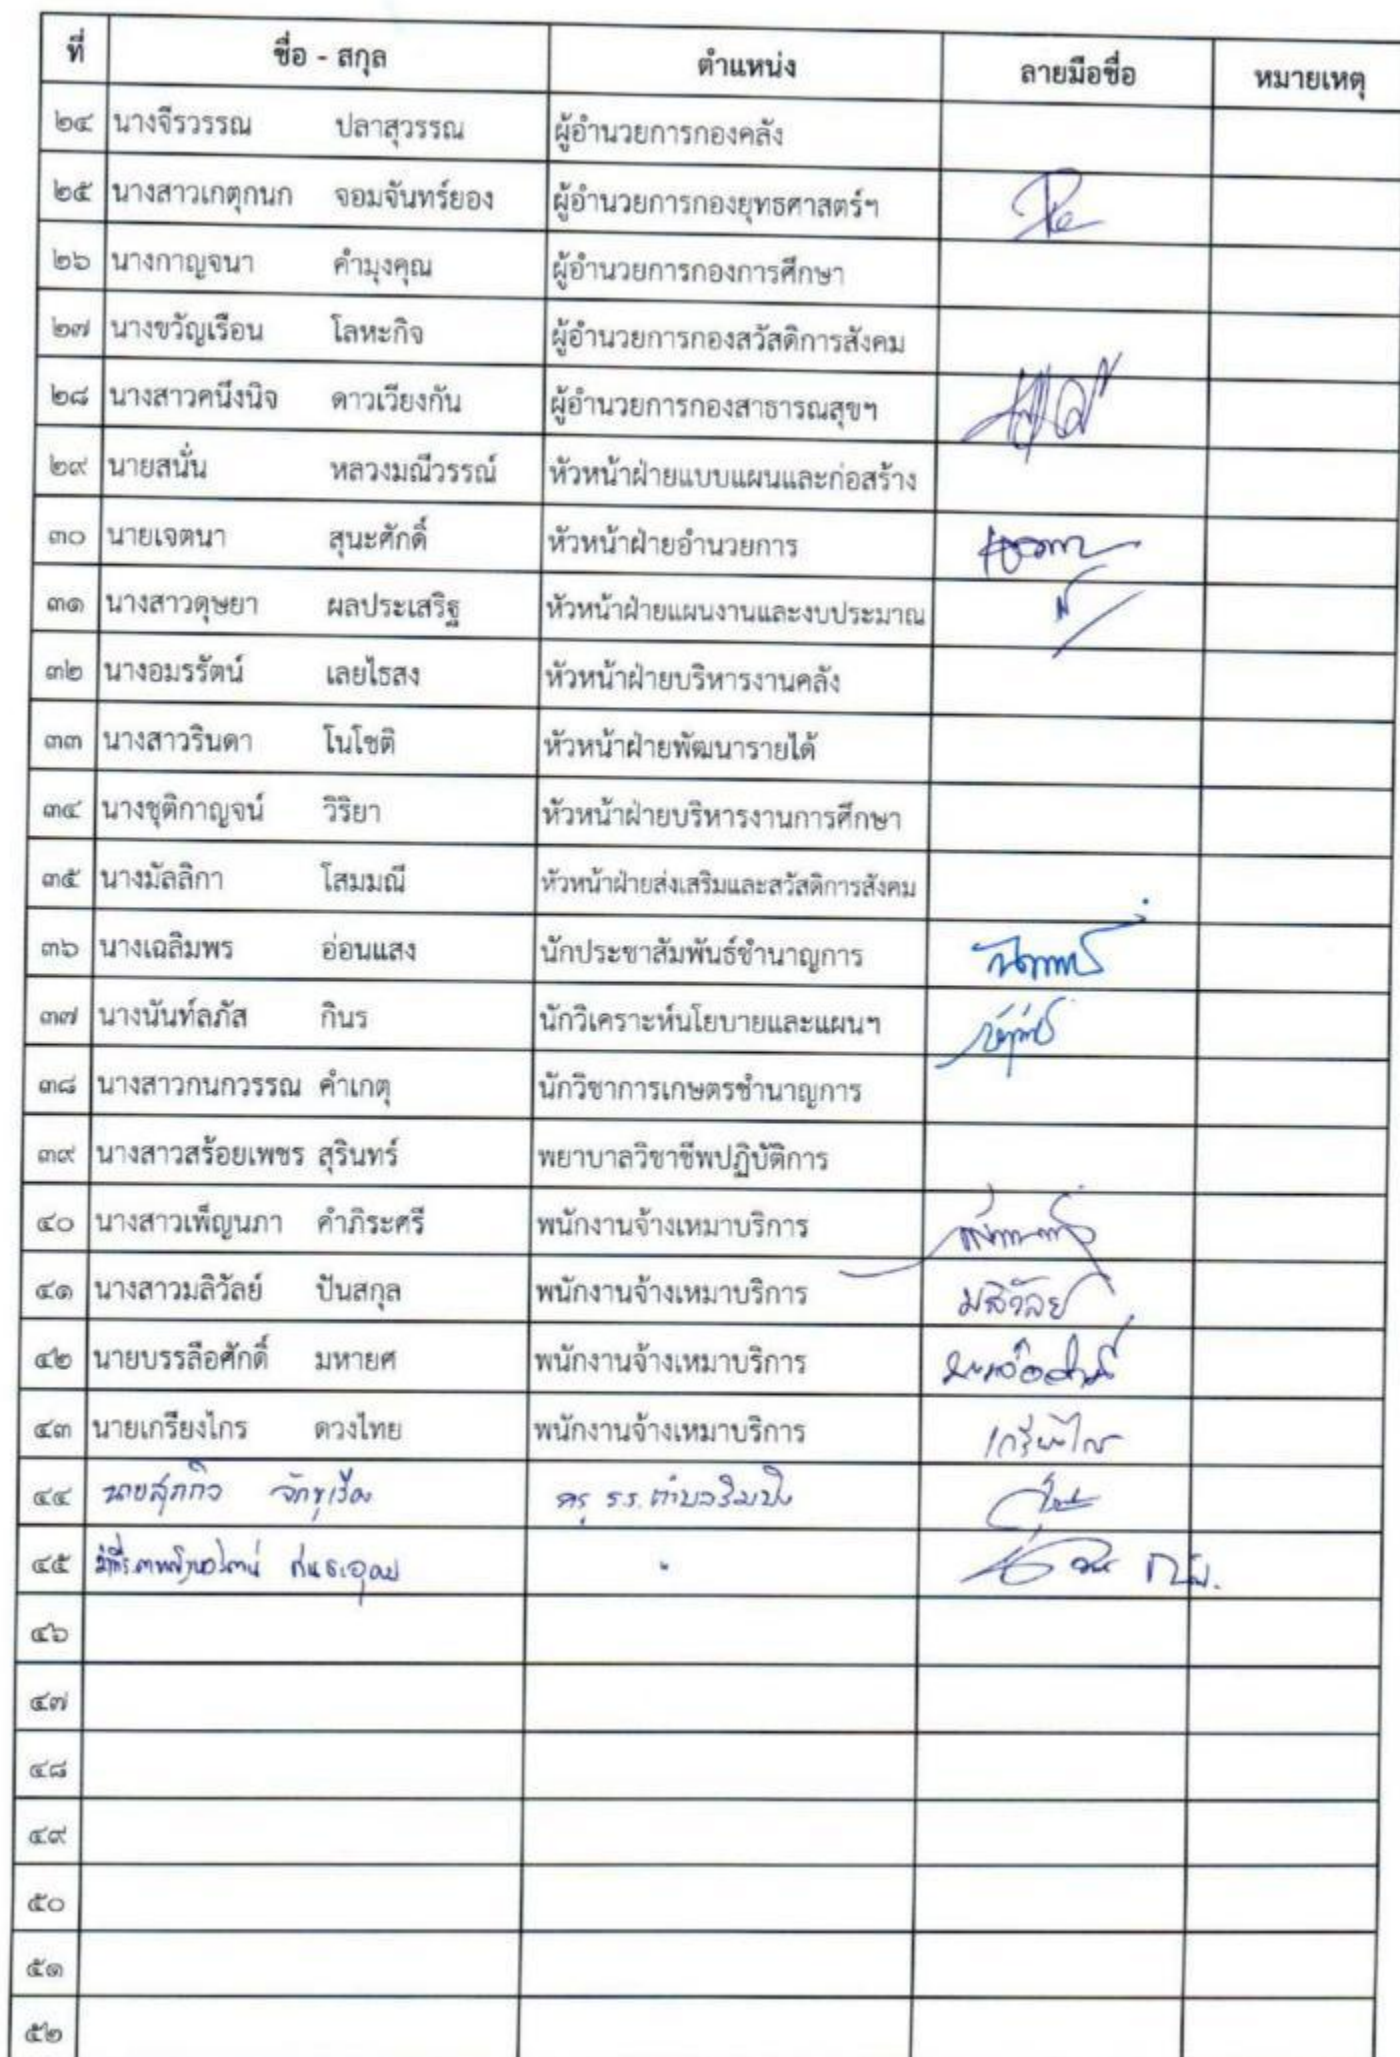 ที่ ชื่อ - สกุล ตำแหน่ง ลายมือชื่อ หมายเหตุ
๒๔ นางจีรวรรณ ปลาสุวรรณ ผู้อำนวยการกองคลัง
๒๕ นางสาวเกตุกนก จอมจันทร์ยอง ผู้อำนวยการกองยุทธศาสตร์ฯ
๒๖ นางกาญจนา คำมุงคุณ ผู้อำนวยการกองการศึกษา
๒๗ นางขวัญเรือน โลหะกิจ ผู้อำนวยการกองสวัสดิการสังคม
๒๘ นางสาวคนึงนิจ ดาวเวียงกัน ผู้อำนวยการกองสาธารณสุขฯ
๒๙ นายสนั่น หลวงมณีวรรณ์ หัวหน้าฝ่ายแบบแผนและก่อสร้าง
๓๐ นายเจตนา สุนะศักดิ์ หัวหน้าฝ่ายอำนวยการ
๓๑ นางสาวดุษยา ผลประเสริฐ หัวหน้าฝ่ายแผนงานและงบประมาณ
๓๒ นางอมรรัตน์ เลยไธสง หัวหน้าฝ่ายบริหารงานคลัง
๓๓ นางสาวรินดา โนโชติ หัวหน้าฝ่ายพัฒนารายได้
๓๔ นางชุติกาญจน์ วิริยา หัวหน้าฝ่ายบริหารงานการศึกษา
๓๕ นางมัลลิกา โสมมณี หัวหน้าฝ่ายส่งเสริมและสวัสดิการสังคม
๓๖ นางเฉลิมพร อ่อนแสง นักประชาสัมพันธ์ชำนาญการ
๓๗ นางนันท์ลภัส กินร นักวิเคราะห์นโยบายและแผนฯ
๓๘ นางสาวกนกวรรณ คำเกตุ นักวิชาการเกษตรชำนาญการ
๓๙ นางสาวสร้อยเพชร สุรินทร์ พยาบาลวิชาชีพปฏิบัติการ
๔๐ นางสาวเพ็ญนภา คำภิระศรี พนักงานจ้างเหมาบริการ
๔๑ นางสาวมลิวัลย์ ปันสกุล พนักงานจ้างเหมาบริการ มลิวัลย์
๔๒ นายบรรลือศักดิ์ มหายศ พนักงานจ้างเหมาบริการ
๔๓ นายเกรียงไกร ดวงไทย พนักงานจ้างเหมาบริการ เกรียงไกร
๔๔ นายสุภกิจ ครู ร.ร. ตำบลริมปิง
๔๕ "
๔๖
๔๗
๔๘
๔๙
๕๐
๕๑
๕๒